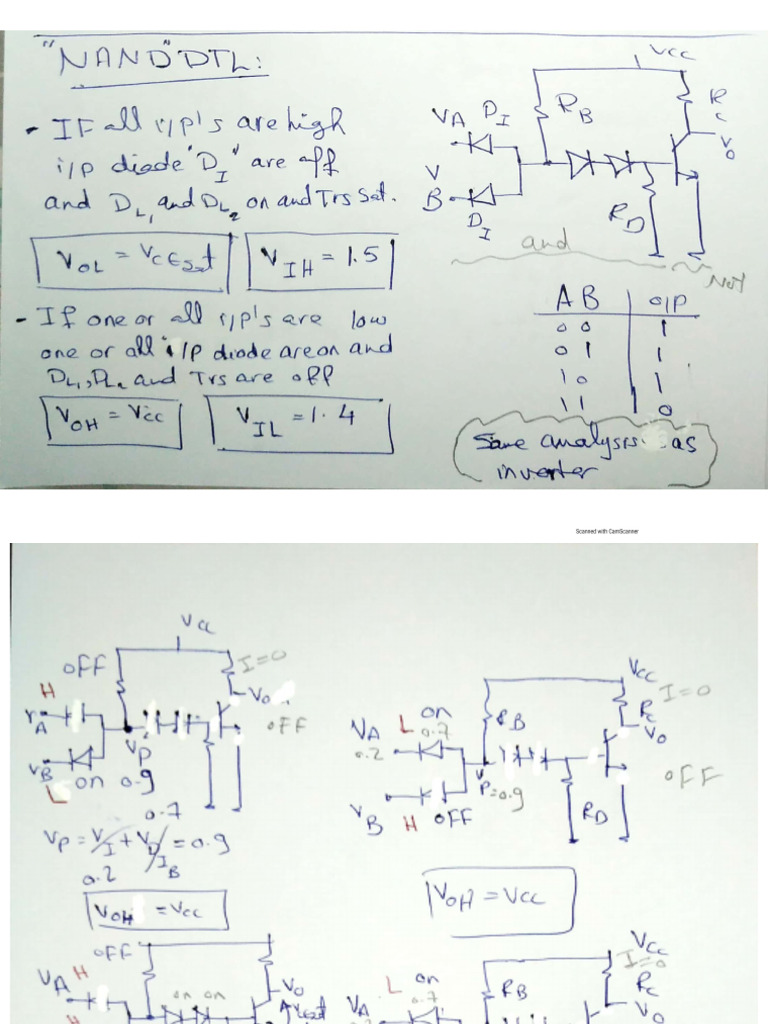 "NAND" DTL:
- IF all i/p's are high
i/p diode "D_I" are off
and D_L1 and D_L2 on and Trs Sat.
V_OL = V_CE Sat
V_IH = 1.5
- If one or all i/p's are low
one or all i/p diode are on and
D_L1, D_L2 and Trs are off
V_OH = Vcc
V_IL = 1.4
Vcc
VA D_I
R_B
R_C
Vo
V
B
D_I
R_D
and
Not
A B | o/P
0 0 | 1
0 1 | 1
1 0 | 1
1 1 | 0
Same analysis as
inverter
Scanned with CamScanner
Vcc
OFF
I=0
H
VA
Vo
OFF
Vp
VB
on 0.9
L
0.7
Vp = V_I + V_D I_B = 0.9
0.2
V_OH = Vcc
Vcc
I=0
on
VA L 0.7
0.2
R_B
R_C
Vo
Vp=0.9
OFF
VB H OFF
R_D
V_OH = Vcc
OFF
VA H
on on
Vo
H
Vcc
I=0
L on
VA 0.7
R_B
R_C
Vo